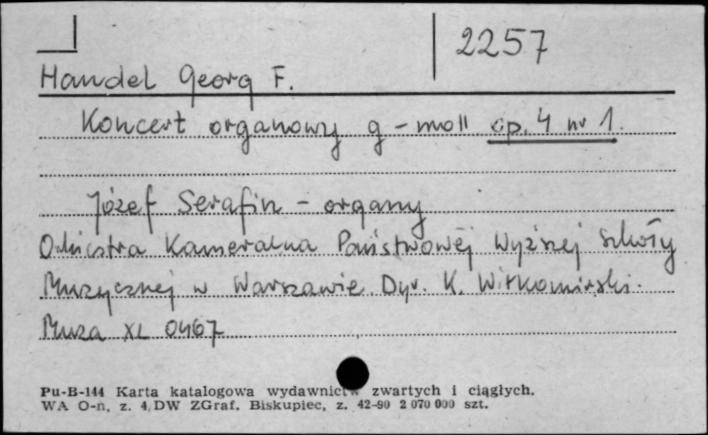 2257
Handel Georg F.
Koncert organowy g-moll op. 4 nr 1.
Józef Serafin - organy
Orkiestra Kameralna Państwowej Wyższej Szkoły
Muzycznej w Warszawie Dyr. K. Wiłkomirski.
Muza XL 0467
Pu-B-144 Karta katalogowa wydawnictw zwartych i ciągłych.
WA O-n, z. 4/DW ZGraf. Biskupiec, z. 42-90 2 070 000 szt.